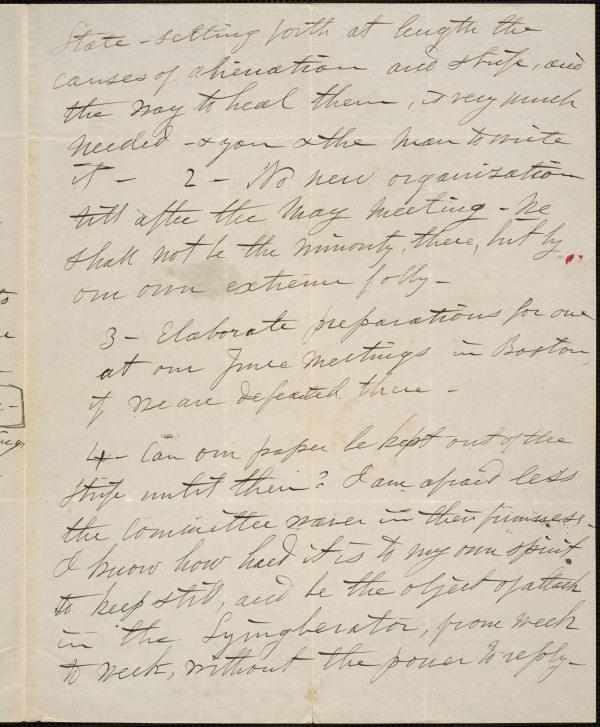 State - setting forth at length the
causes of alienation and strife, and
the way to heal them, is very much
needed - & you & the man to write
it - 2 - No new organization
till after the May meeting - We
shall not be the minority, there, but by
our own extreme folly -
3 - Elaborate preparations for one
at our June meetings in Boston,
if we are defeated there -
4 - Can our paper be kept out of the
strife until then? I am afraid less
the committee waver in their firmness -
I know how hard it is to my own spirit
to keep still, and be the object of attack
in the Lyingberator, from week
to week, without the power to reply -
to